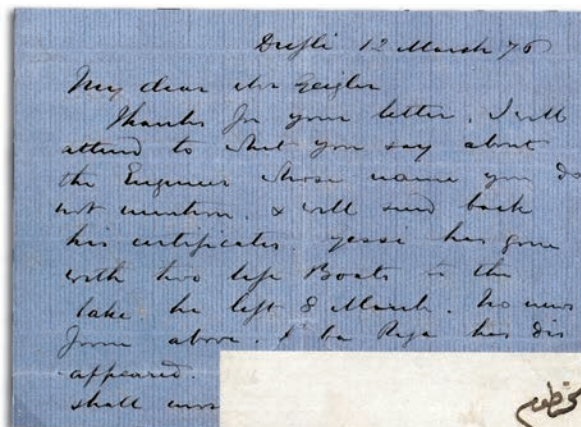 Dufli 12 March 76
My dear Mr Geigler
Thanks for your letter, I will
attend to what you say about
the Engineer whose name you do
not mention. & will send back
his certificates. Gessi has gone
with two life Boats to the
lake. he left 8 March. No news
from above. ba Rega has dis
-appeared.
shall